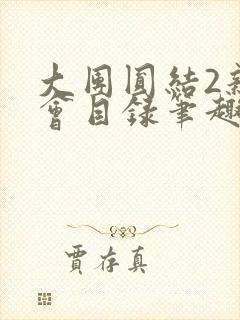 大团圆结2新
会目录笔趣
贾存真